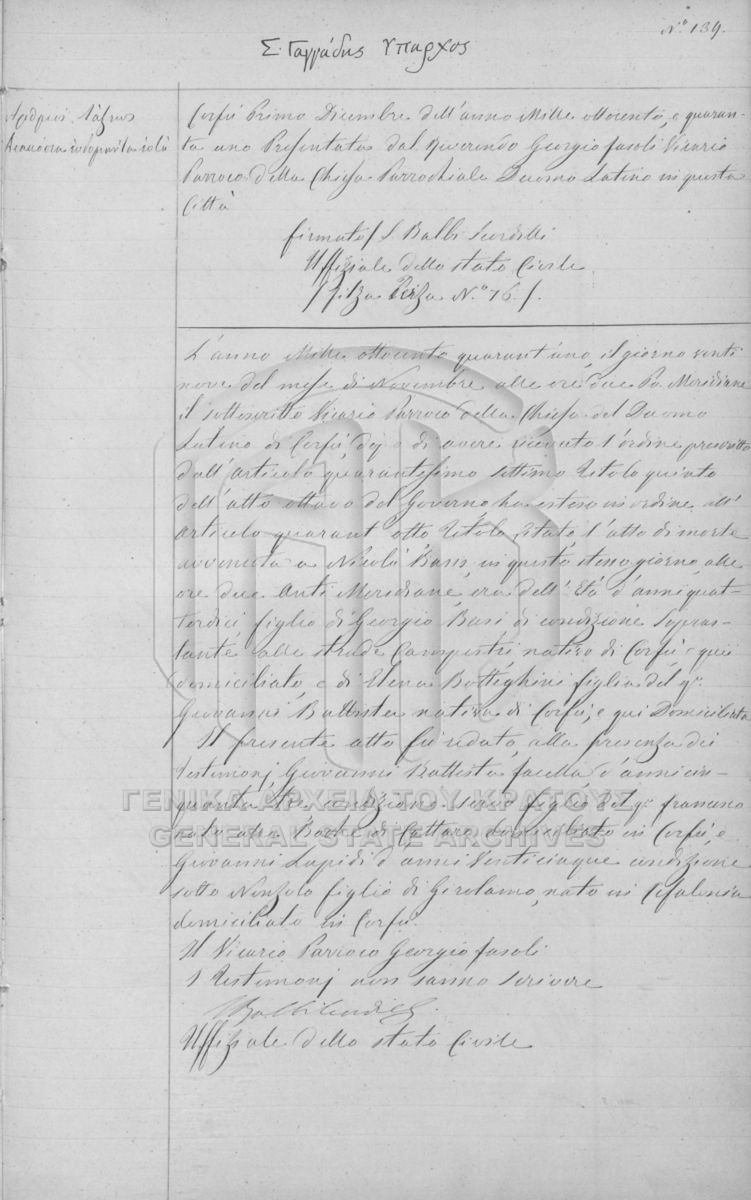 Nº 139.
Σ. Γαγγάδης Ύπαρχος
Αριθμός τάξεως
Διακόσια εβδομήντα επτά
Corfù Primo Dicembre dell'anno Mille ottocento, e quaran-
ta uno Presentatas dal Reverendo Georgio Fasoli Vicario
Parroco della Chiesa Parrochiale Duomo Latino in questa
Città
firmato / S. Balbi
Uffiziale dello stato Civile
/ filza Terza Nº 76 /.
L'anno Mille ottocento quarant'uno, il giorno venti
nove del mese di Novembre alle ore due Po. Meridiane
il sottoscritto Vicario Parroco della Chiesa del Duomo
Latino di Corfù, dopo di avere ricevuto l'ordine prescritto
dall'articolo quarantesimo settimo Titolo quinto
dell'atto ottavo del Governo, ha esteso in ordine all'
articolo quarant'otto Titolo stato l'atto di morte
avvenuta a Nicolò Basis in questo stesso giorno, alle
ore due Anti Meridiane, era dell'Età d'anni quat-
tordici figlio di Georgio Basi di condizione Sopras-
tante alle strade Campestri nativo di Corfù, e quì
domiciliato, e di Elena Botteghini figlia del q.m
Giovanni Battista nativa di Corfù, e qui Domiciliata
Il presente atto fù redato, alla presenza dei
testimonj Giovanni Battista facella d'anni cin-
quanta tre condizione servo figlio del q.m francesco
nato alle Bocche di Cattaro, domiciliato in Corfù, e
Giovanni Lapidi d'anni Venticinque condizione
sotto Nonzolo figlio di Girolamo, nato in Cefalonia
domiciliato in Corfù.
Il Vicario Parroco Georgio Fasoli
I Testimonj non sanno scrivere
Uffiziale dello stato Civile
ΓΕΝΙΚΑ ΑΡΧΕΙΑ ΤΟΥ ΚΡΑΤΟΥΣ
GENERAL STATE ARCHIVES